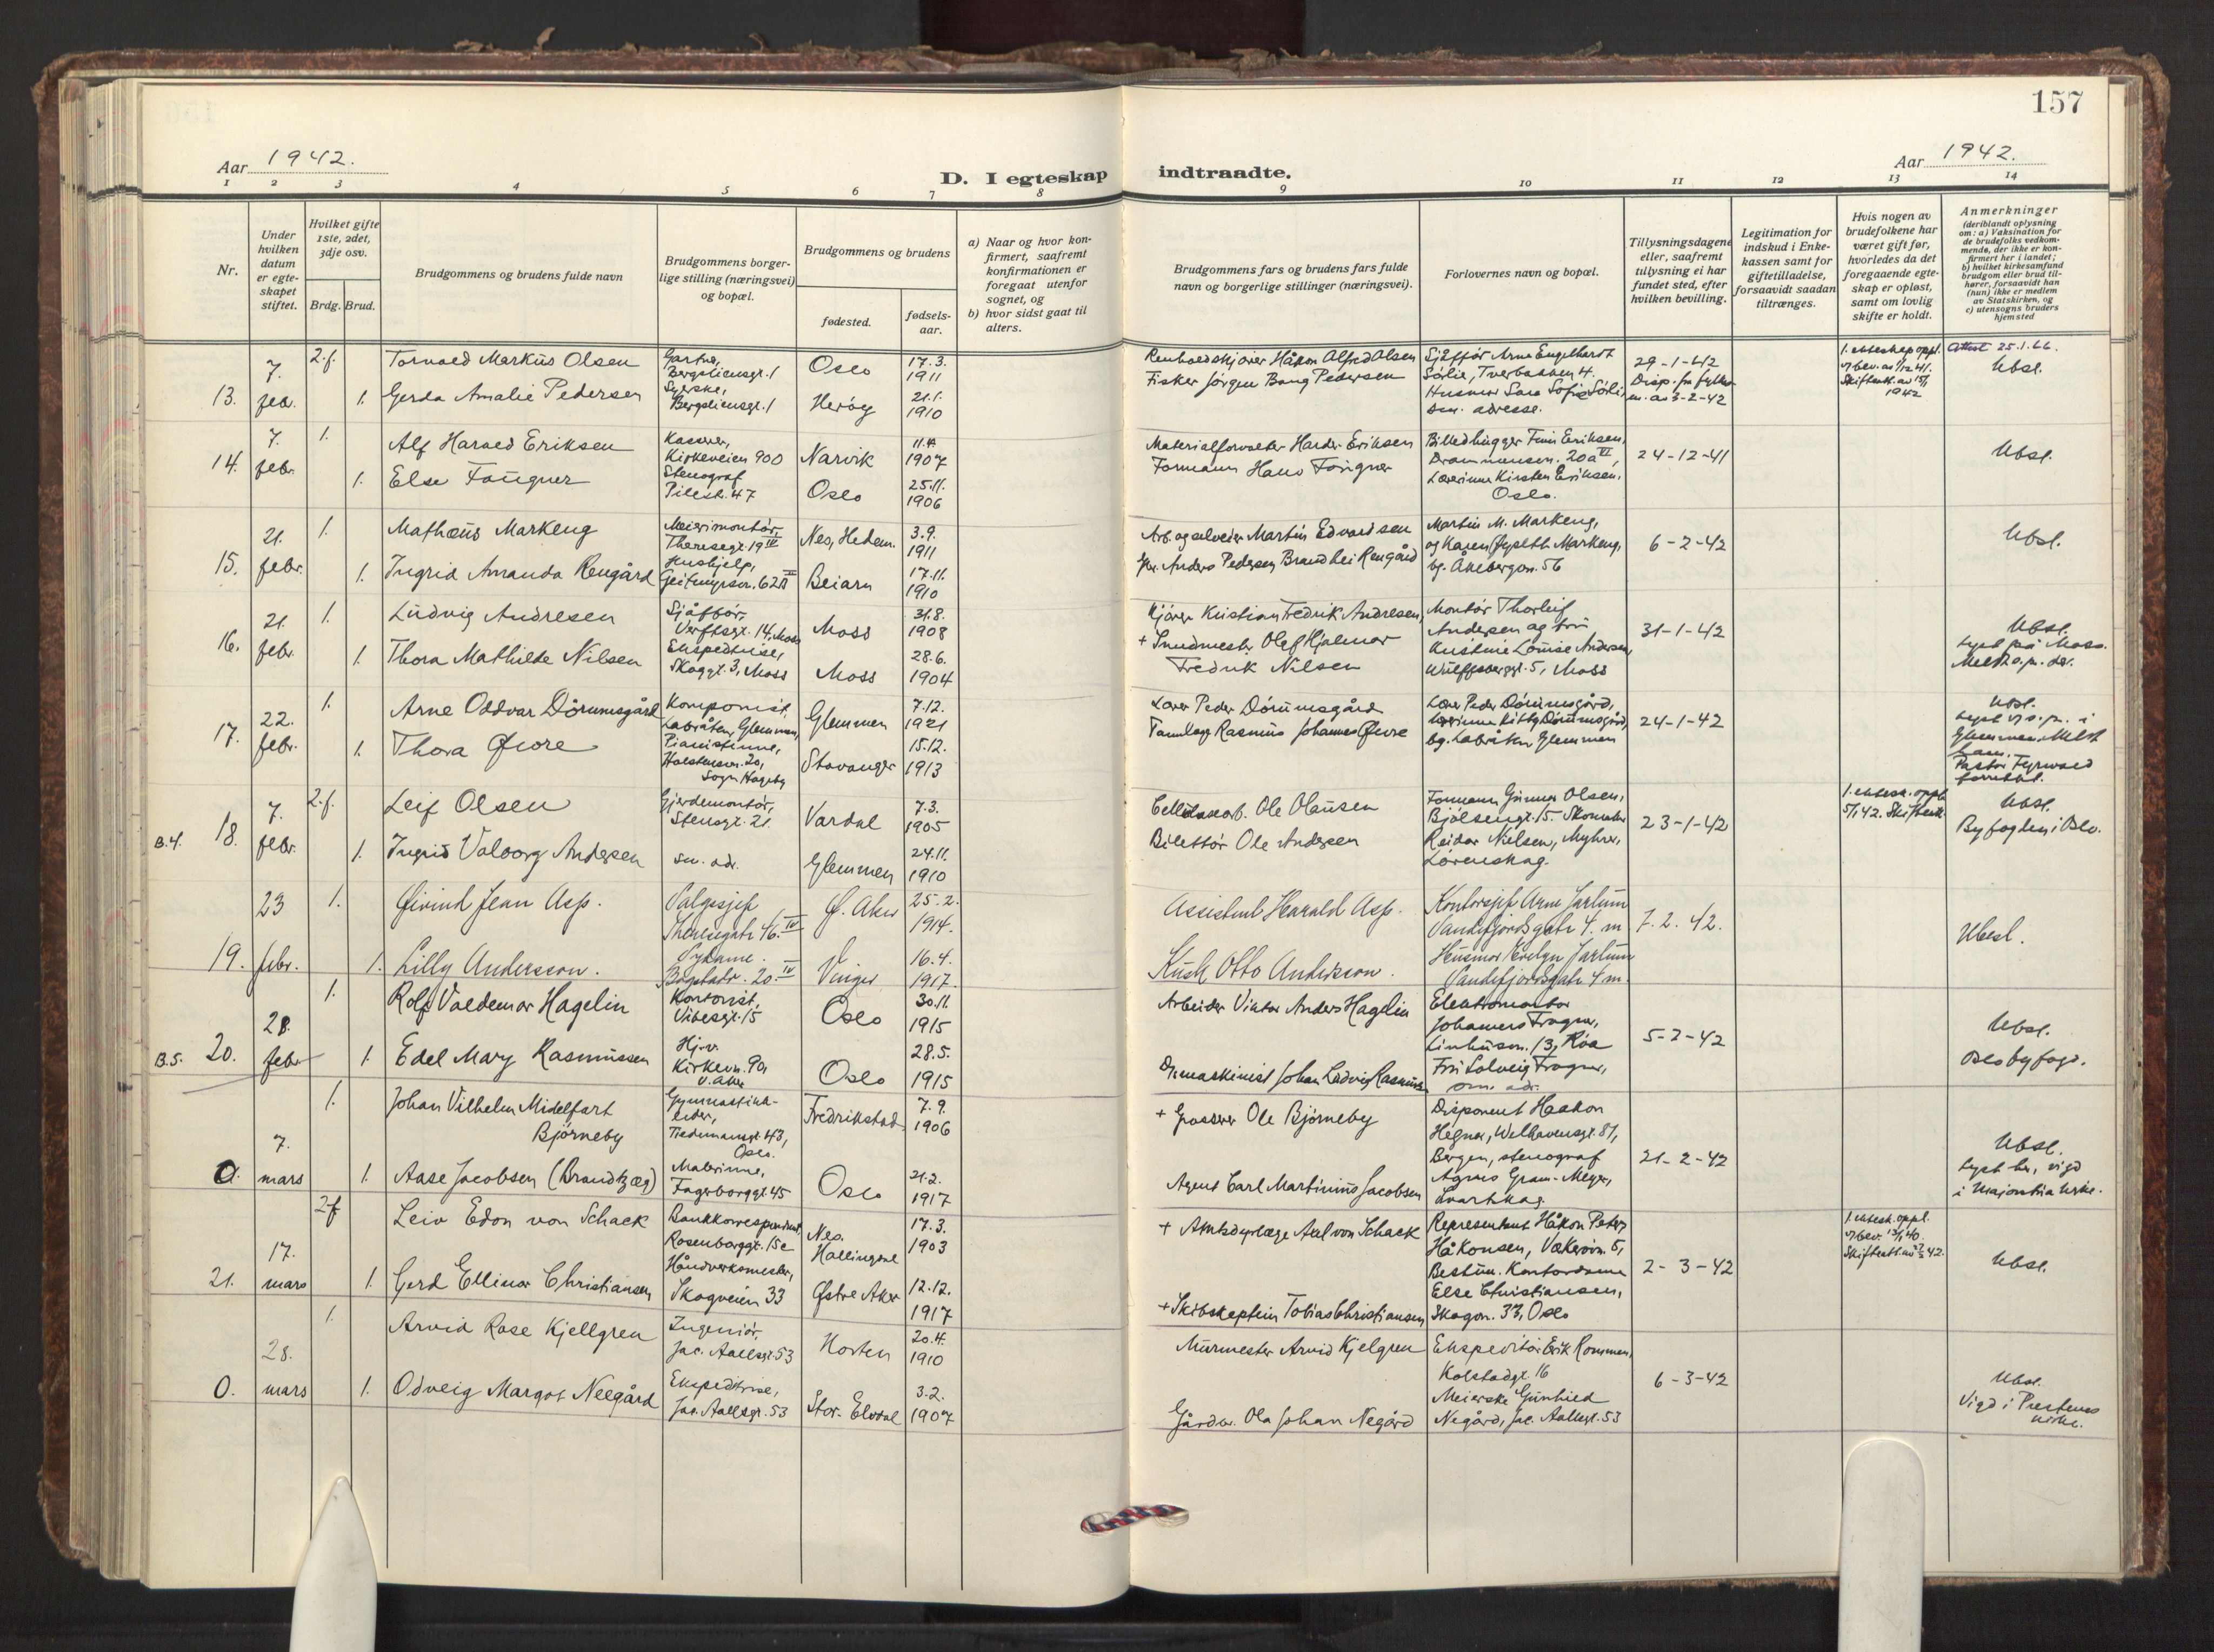 157
Aar 1942.
D. I egteskap indtraadte.
Aar 1942.
1 2 3 4 5 6 7 8 9 10 11 12 13 14
Nr.
Under hvilken datum er egte-skapet stiftet.
Hvilket gifte 1ste, 2det, 3dje osv.
Brdg. Brud.
Brudgommens og brudens fulde navn
Brudgommens borger-lige stilling (næringsvei) og bopæl.
Brudgommens og brudens
fødested.
fødsels-aar.
a) Naar og hvor kon-firmert, saafremt konfirmationen er foregaat utenfor sognet, og
b) hvor sidst gaat til alters.
Brudgommens fars og brudens fars fulde navn og borgerlige stillinger (næringsvei).
Forlovernes navn og bopæl.
Tillysningsdagene eller, saafremt tillysning ei har fundet sted, efter hvilken bevilling.
Legitimation for indskud i Enke-kassen samt for giftetilladelse, forsaavidt saadan tiltrænges.
Hvis nogen av brudefolkene har været gift før, hvorledes da det foregaaende egte-skap er opløst, samt om lovlig skifte er holdt.
Anmerkninger
(deriblandt oplysning om: a) Vaksination for de brudefolks vedkom-mende, der ikke er kon-firmert her i landet;
b) hvilket kirkesamfund brudgom eller brud til-hører, forsaavidt han (hun) ikke er medlem av Statskirken, og
c) utensogns bruders hjemsted
13. 7. febr. 2.f. Torvald Markus Olsen Gartner, Bergsliensgt. 1 Oslo 17.3. 1911
Renholdskjører Håkon Alfred Olsen Sjåffør Arne Engelhardt Sørlie, Tverbakken 4. 29-1-42 Attest 25.1.66. Ubsl.
1. Gerda Amalie Pedersen Syerske, Bergsliensgt. 1 Herøy 21.1. 1910
Fisker Jørgen Bang Pedersen Husmor Sara Sofie Sørli sm. adresse. 3-2-42
14. 7. febr. 1. Alf Harald Eriksen Kasserer, Kirkeveien 90 Narvik 1907
Materialforvalter Eriksen Billedhugger Finn Eriksen, 24-12-41 Ubsl.
1. Else Fougner Stenograf Pilestr. 47 Oslo 25.11. 1906
Formann Hans Fougner Lærerinne Kirsten Eriksen, Oslo.
15. 21. febr. 1. Mathæus Markeng Meierimontør, Theresegt. 19 IV Nes, Hedem. 3.9. 1911
Martin Edvardsen Martin M. Markeng, 6-2-42 Ubsl.
1. Ingrid Amanda Rengård Hushjelp, Beiarn 17.11. 1910
Anders Pedersen Brandhei Rengård og Karen Markeng, bg. Åkebergvn. 56
16. 21. febr. 1. Ludvig Andresen Sjåffør, Verftsgt. 14, Moss Moss 31.8. 1908
Kjører Kristian Fredrik Andresen, Montør Thorleif Andersen og fru 31-1-42 Ubsl. Lyst frå Moss.
1. Thora Mathilde Nilsen Ekspeditrise, Skoggt. 3, Moss Moss 28.6. 1904
+ Smedmestr. Olaf Hjalmar Fredrik Nilsen Kristine Louise Andersen, Wulfsberggt. 5, Moss
17. 22. febr. 1. Arne Oddvar Dørumsgård Komponist, Labråten, Glemmen, Glemmen 7.12. 1921
Lærer Peder Dørumsgård Lærer Peder Dørumsgård, 24-1-42 Ubsl.
1. Thora Øvre Pianistinne, Sogn Hageby Stavanger 15.12. 1913
Tannlæge Rasmus Johannes Øvre Lærerinne Kitty Dørumsgård, bg. Labråten Glemmen
B.4. 18. 7. febr. 2.f. Leif Olsen Gjerdemontør, Stensgt. 21. Vardal 7.3. 1905
Ole Olausen Formann Gunnar Olsen, Bjølsengt. 15. 23-1-42 Ubsl. Byfogden i Oslo.
1. Ingrid Valborg Andersen sm. adr. Glemmen 24.11. 1910
Billettør Ole Andersen Reidar Nielsen, Myhrer, Lørenskog.
19. 23 febr. 1. Øivind Jean Asp. Salgssjef Theresegate 46. IV Ø. Aker 25.2. 1914.
Assistent Harald Asp. Kontorsjef Arne Jartum Sandefjordsgate 4. m 7.2.42. Ubesl.
1. Lilly Andersson. Sydame. 20. IV Vinger 16.4. 1917.
Kusk Otto Andersson. Husmor Evelyn Jartum Sandefjordsgate 4 m.
B.5. 20. 28. febr 1. Rolf Valdemar Hagelin Kontorist, Vibesgt. 15 Oslo 30.11. 1915
Arbeider Viktor Anders Hagelin Elektromontør Johannes Fragner, Linhusvn. 13, Røa 5-2-42 Ubsl. Oslo byfogd.
1. Edel Mary Rasmussen Hj.v. Kirkevn. 90, V. Aker Oslo 28.5. 1915
Johan Ludvig Rasmussen Fru Solveig Fragner, sm. adr.
0. 7. mars 1. Johan Vilhelm Midelfart Bjørneby Gymnastikk-leder, Tiedemansgt. 43, Oslo. Fredrikstad 7.9. 1906
+ Grosserer Ole Bjørneby Disponent Haakon Hegner, Welhavensgt. 81, Bergen, stenograf 21-2-42 Ubsl. Lyst her, vigd i Majorstua kirke.
1. Aase Jacobsen (Brandtzæg) Malerinne, Fagerborggt. 45 Oslo 21.2. 1917
Agent Carl Martinius Jacobsen Agnes Gram-Meyer, Svartskog.
21. 17. mars 2.f Leiv Edon von Schack Bankkorrespondent, Rosenborggt. 15c Nes. Hallingdal 17.3. 1903
+ Amtsdyrlæge Axel von Schack Representant Håkon Peter Håkonsen, Vækerøvn. 5, 2-3-42 Ubsl.
1. Gerd Ellinor Christiansen Håndverksmester, Skogveien 33 Østre Aker 12.12. 1917
+ Skibskaptein Tobias Christiansen Bestm. Kontordame Else Christiansen, Skogvn. 33, Oslo
0. 28. mars 1. Arvid Rose Kjellgren Ingeniør, Jac. Aallsgt. 53 Horten 20.4. 1910
Murmester Arvid Kjelgren Ekspeditør Erik Rommen, Kolstadgt. 16 6-3-42 Ubsl. Vigd i Prestenes kirke.
1. Odveig Margot Neegård Ekspeditrise, Jac. Aallsgt. 53 Stor-Elvdal 3.2. 1907
Gårdbr. Ola Johan Negård Meierske Gunhild Negård, Jac. Aallsgt. 53